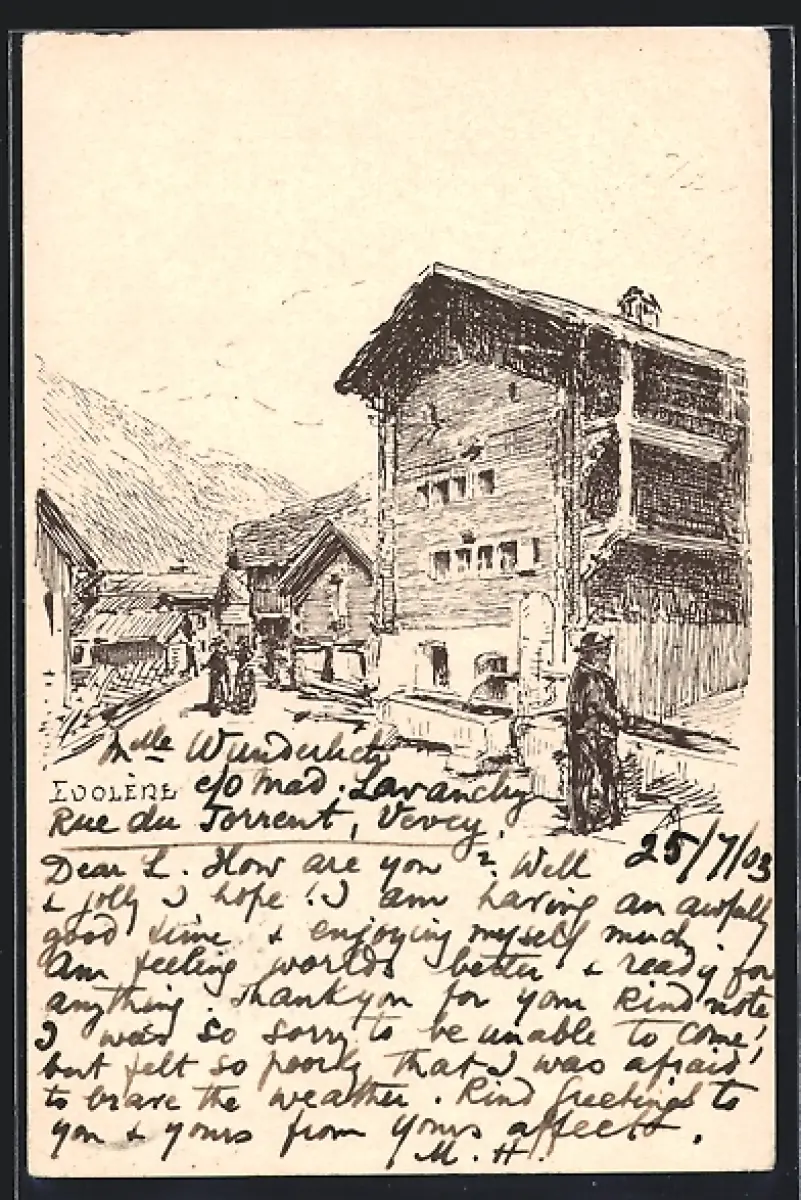 Mlle Wunderlich
EVOLÈNE c/o Mad. Lavanchy
Rue du Torrent, Vevey,
25/7/03
Dear L. How are you? Well
& jolly I hope! I am having an awfully
good time & enjoying myself much.
Am feeling worlds better & ready for
anything. Thank you for your kind note
I was so sorry to be unable to come!
but felt so poorly that I was afraid
to brave the weather. Kind greetings to
you & yours from yours affectly.
M. H.